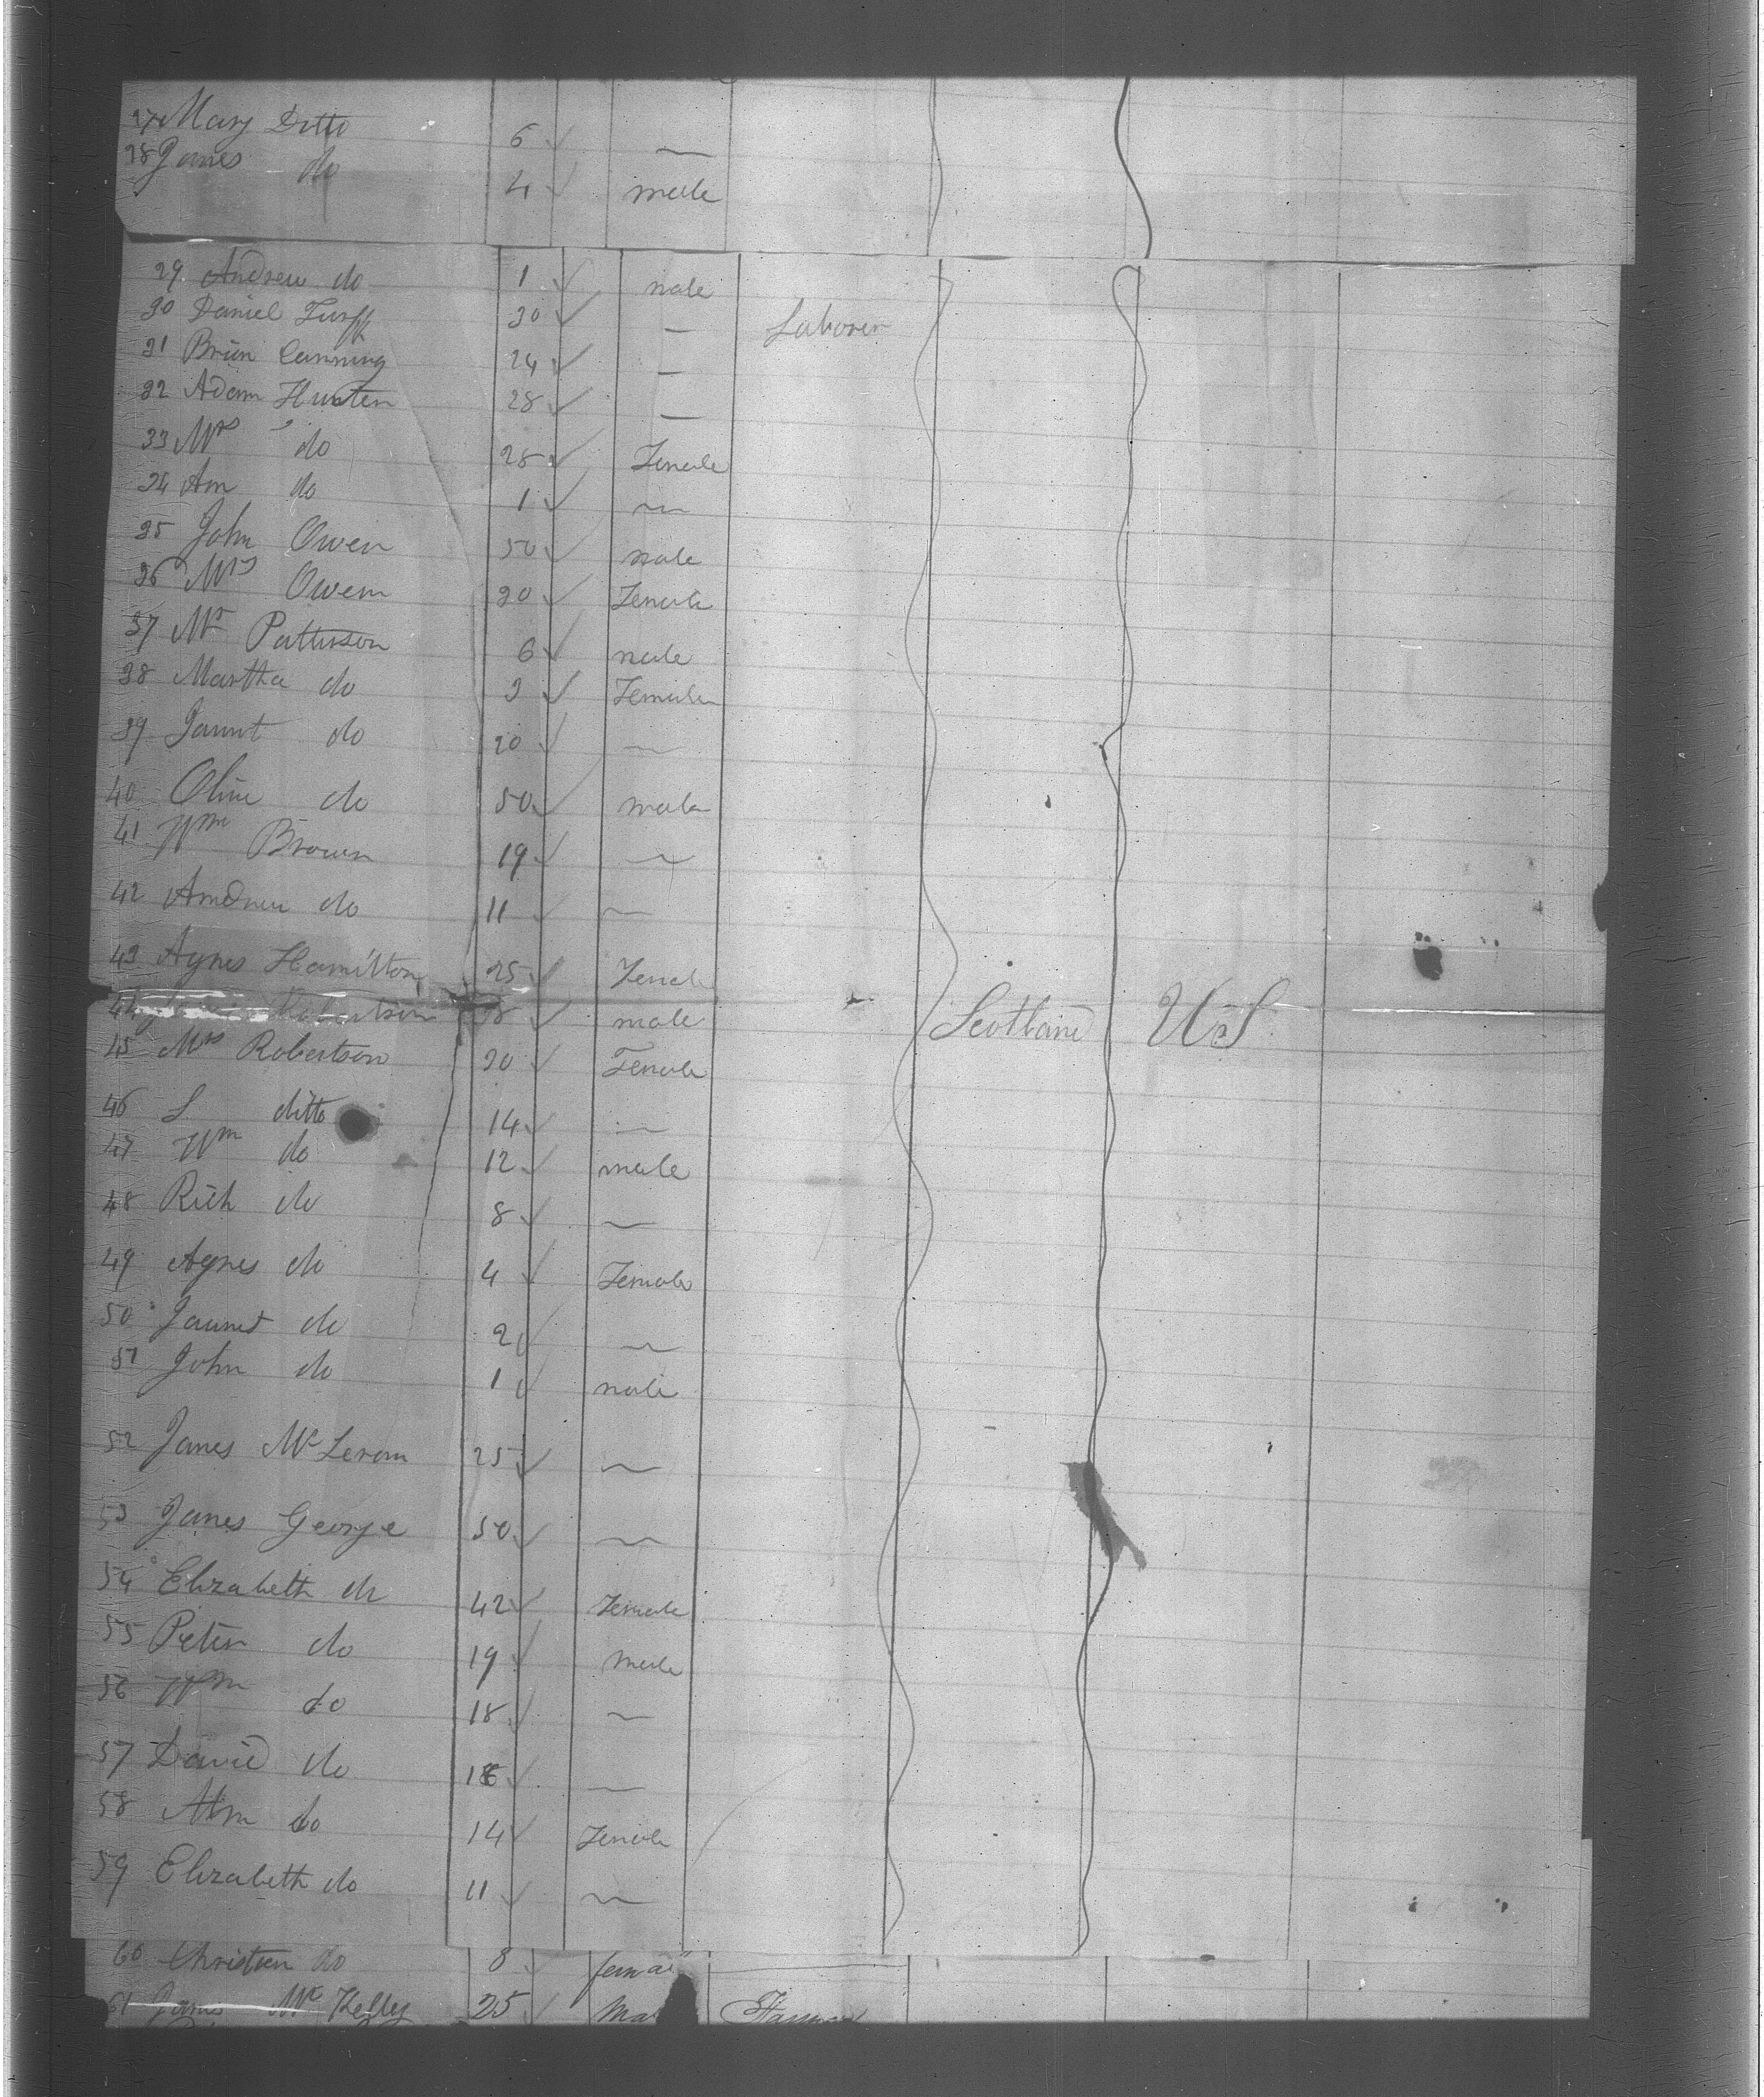 27 Mary Ditto 6 ✓ —
28 James do 4 ✓ male
29 Andrew do 1 ✓ male
30 Daniel 30 ✓ — Laborer
31 Brien Cunning 24 ✓ —
32 Adam Hunten 28 ✓ —
33 Mrs do 28 ✓ Female
34 Ann do 1 ✓ —
35 John Owen 50 ✓ male
36 Mrs Owen 30 ✓ Female
37 Mr Patterson 6 ✓ male
38 Martha do 3 ✓ Female
39 Jannt do 20 ✓ —
40 do 50 ✓ male
41 Wm Brown 19 ✓ —
42 Andrew do 11 ✓ —
43 Agnes Hamilton 25 ✓ Female
44 Robertson 8 ✓ male Scotland U.S.
45 Mrs Robertson 30 ✓ Female
46 S ditto 14 ✓ —
47 Wm do 12 ✓ male
48 Rich do 8 ✓ —
49 Agnes do 4 ✓ Female
50 Jannet do 2 ✓ —
51 John do 1 ✓ male
52 James 25 ✓ —
53 James George 50 ✓ —
54 Elizabeth do 42 ✓ Female
55 Peter do 19 ✓ male
56 Wm do 18 ✓ —
57 David do 16 ✓ —
58 do 14 ✓ Female
59 Elizabeth do 11 ✓ —
60 Christien do 8 ✓ femal
61 James McKelly 25 ✓ Ma